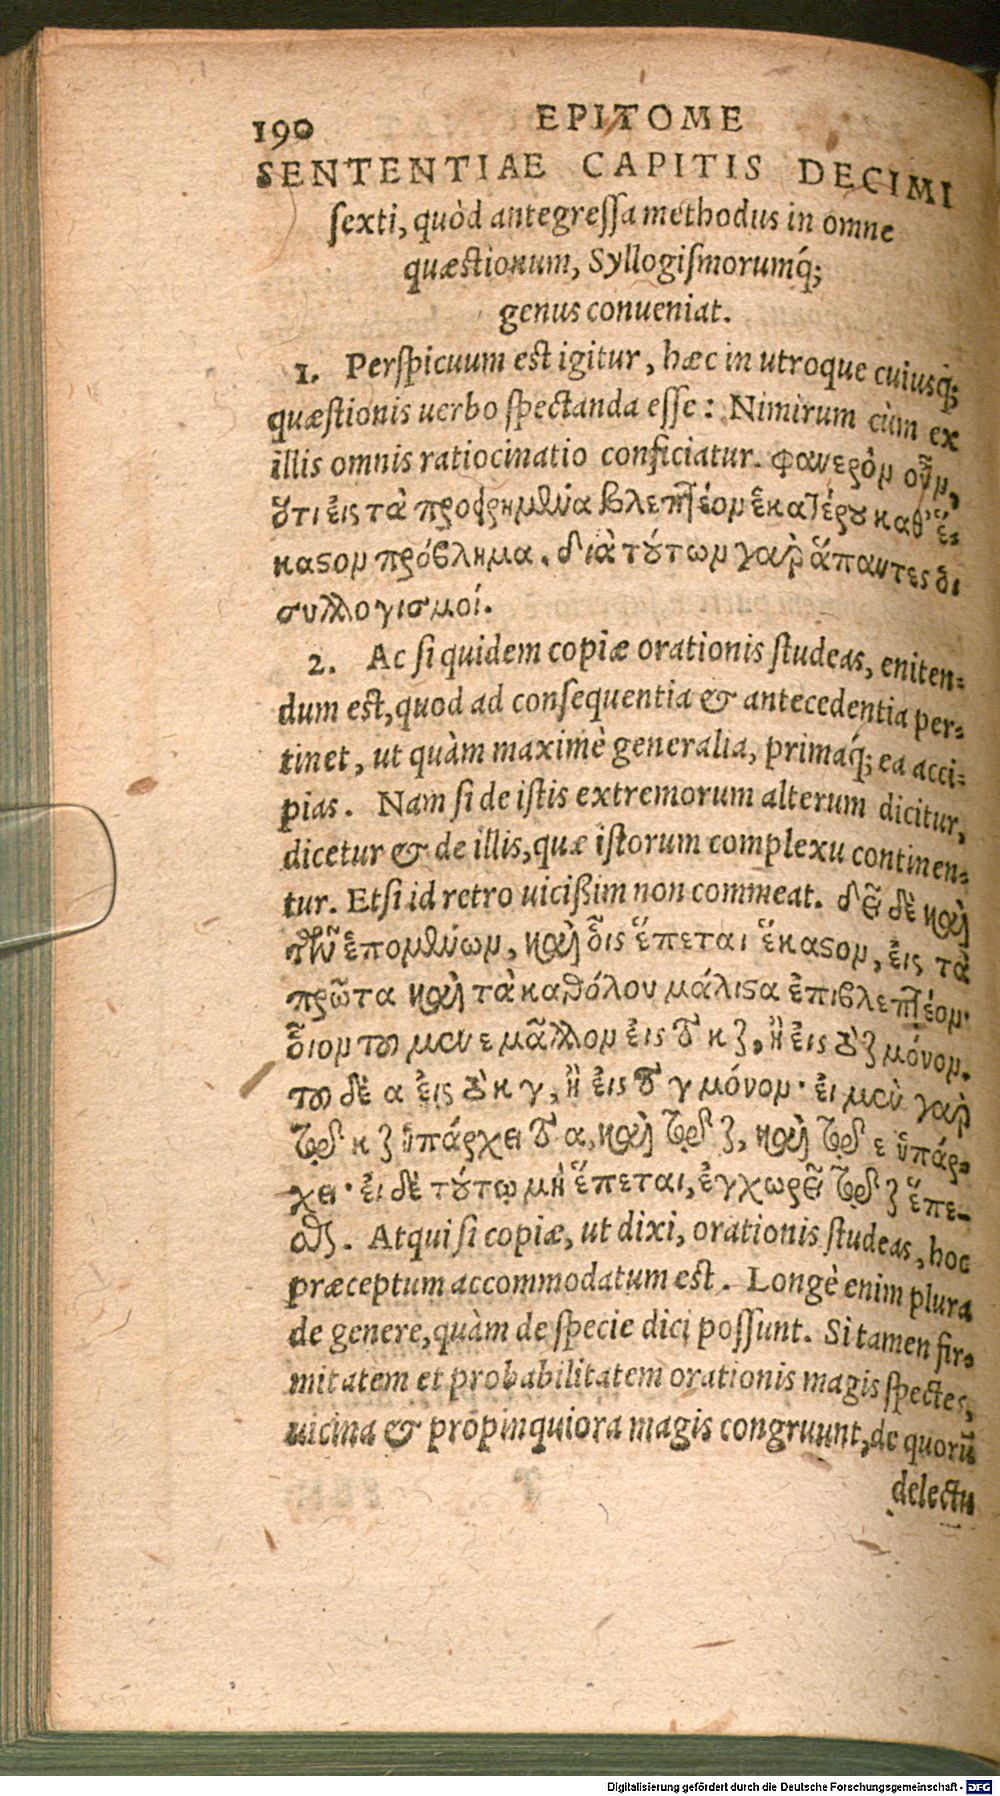 190 EPITOME
SENTENTIAE CAPITIS DECIMI
sexti, quòd antegressa methodus in omne
quæstionum, Syllogismorumq́;
genus conueniat.
1. Perspicuum est igitur, hæc in utroque cuiusq́;
quæstionis uerbo spectanda esse: Nimirum cùm ex
illis omnis ratiocinatio conficiatur. φανερὸν οὖν,
ὅτι εἰς τὰ προειρημένα βλεπτέον ἑκατέρου καθ' ἕ-
καστον πρόβλημα. διὰ τούτων γὰρ ἅπαντες οἱ
συλλογισμοί.
2. Ac si quidem copiæ orationis studeas, eniten-
dum est, quod ad consequentia & antecedentia per-
tinet, ut quàm maximè generalia, primaq́; ea acci-
pias. Nam si de istis extremorum alterum dicitur,
dicetur & de illis, quæ istorum complexu continen-
tur. Etsi id retro uicißim non commeat. δεῖ δὲ καὶ
τῶν ἑπομένων, καὶ οἷς ἕπεται ἕκαστον, εἰς τὰ
πρῶτα καὶ τὰ καθόλου μάλιστα ἐπιβλεπτέον·
οἷον τοῦ μὲν ε μᾶλλον εἰς τὸ κ ζ, ἢ εἰς τὸ ζ μόνον.
τοῦ δὲ α εἰς τὸ κ γ, ἢ εἰς τὸ γ μόνον· εἰ μὲν γὰρ
τῷ κ ζ ὑπάρχει τὸ α, καὶ τῷ ζ, καὶ τῷ ε ὑπάρ-
χει· εἰ δὲ τούτῳ μὴ ἕπεται, ἐγχωρεῖ τῷ ζ ἕπε-
σθαι. Atqui si copiæ, ut dixi, orationis studeas, hoc
præceptum accommodatum est. Longè enim plura
de genere, quàm de specie dici possunt. Si tamen fir-
mitatem et probabilitatem orationis magis spectes,
uicina & propinquiora magis congruunt, de quorū
delectu
Digitalisierung gefördert durch die Deutsche Forschungsgemeinschaft - DFG